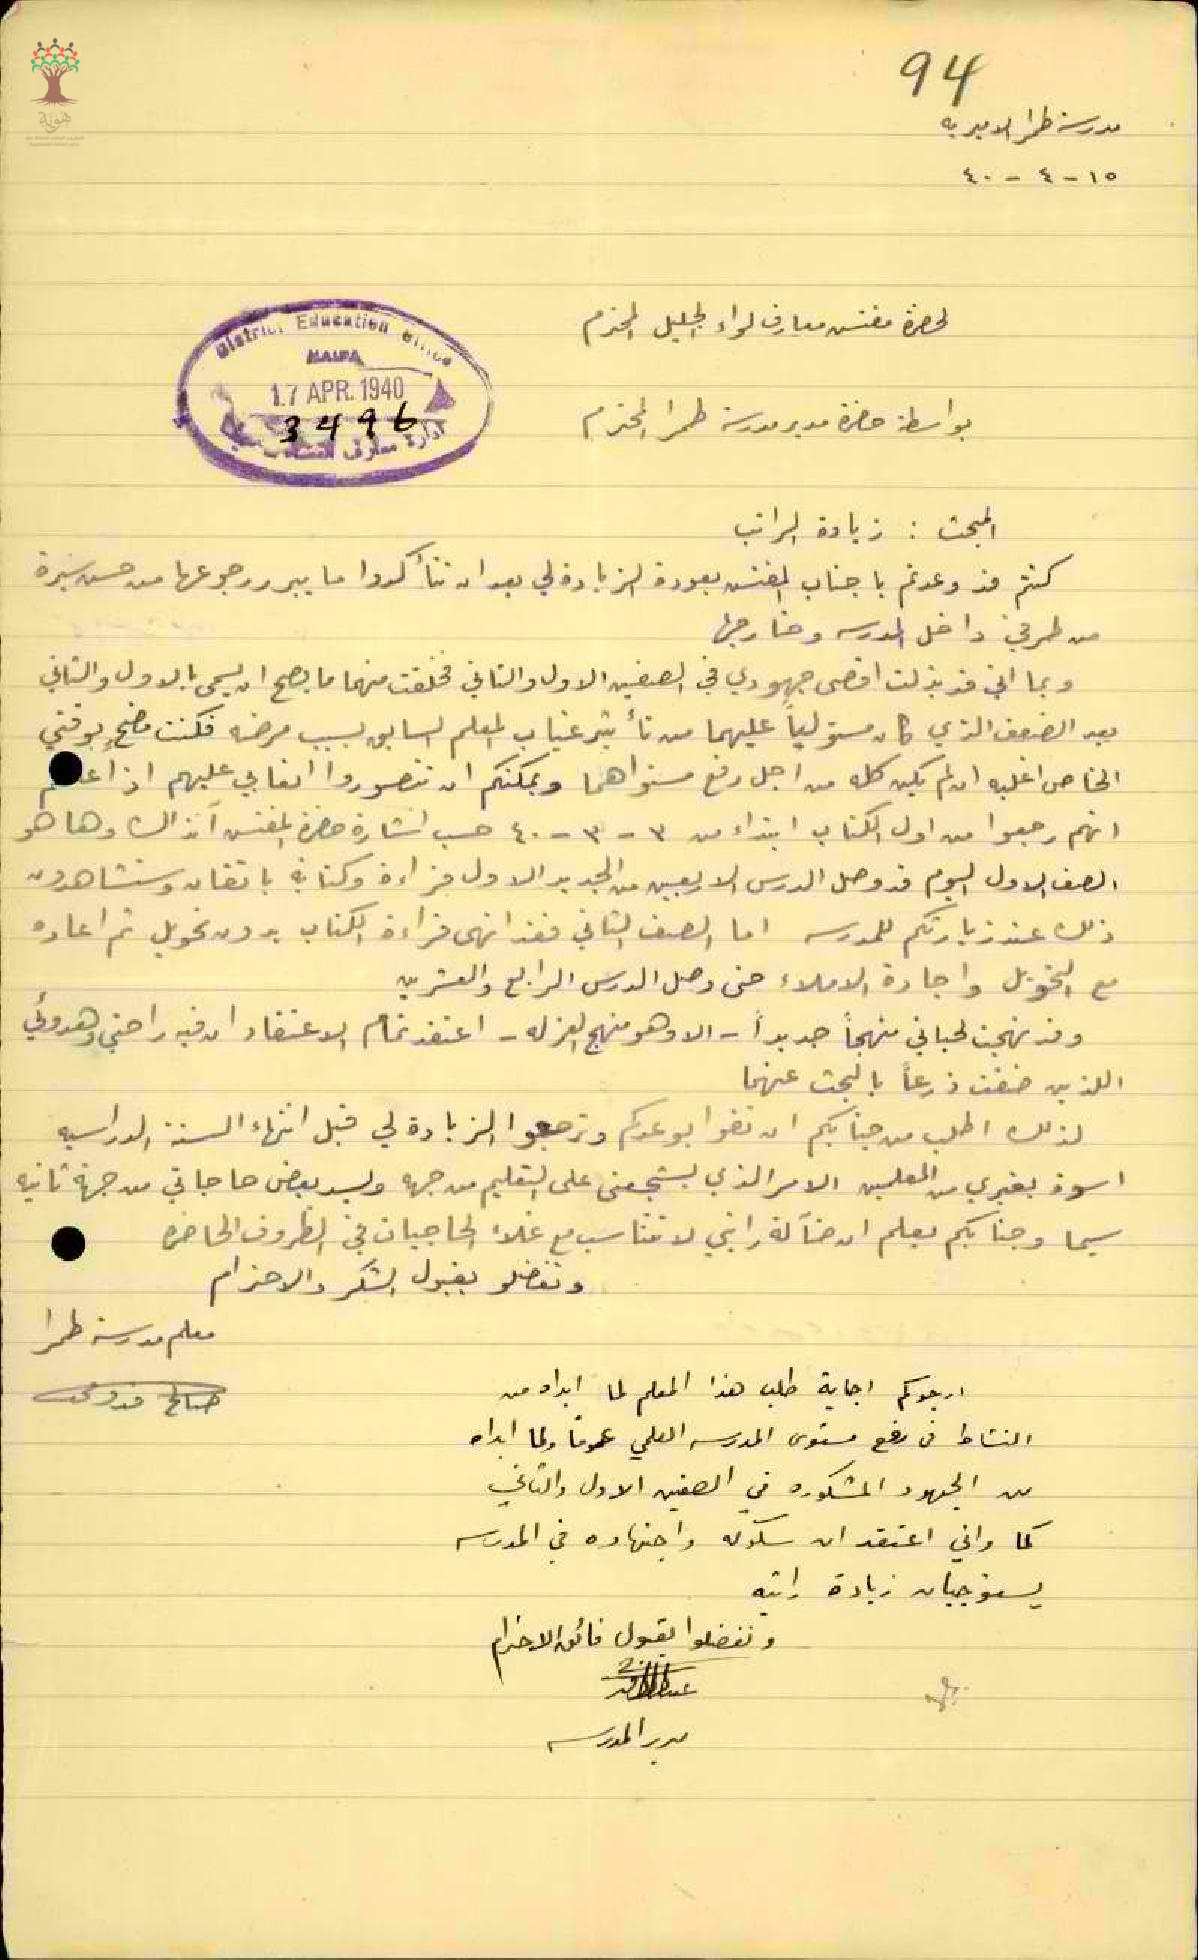 94
مدرسة طمرا الاميريه
١٥ - ٤ - ٤٠
لحضرة مفتش معارف لواء الجليل المحترم
District Education Office
HAIFA
17 APR. 1940
3496
ادارة معارف
بواسطة حضرة مدير مدرسة طمرا المحترم
المبحث : زيادة الراتب
كنتم قد وعدتم يا جناب المفتش بعودة الزيادة لي بعد ان تتأكدوا ما يبرر رجوعها من حسن سيرة
من طرفي داخل المدرسه وخارجها
وبما اني قد بذلت اقصى جهودي في الصفين الاول والثاني فخلقت منهما ما يصح ان يسمى بالاول والثاني
بعد الضعف الذي كان مستولياً عليهما من تأثير غياب المعلم السابق بسبب مرضه فكنت مضحٍ بوقتي
الخاص اغلبه ان لم يكن كله من اجل رفع مستواهما ويمكنكم ان تتصوروا اتعابي عليهم اذا
انهم رجعوا من اول الكتاب ابتداء من ٣ - ٣ - ٤٠ حسب اشارة حضرة المفتش آنذاك وها هو
الصف الاول اليوم قد وصل الدرس الاربعين من الجديد الاول قراءة وكتابة باتقان وستشاهدون
ذلك عند زيارتكم للمدرسه اما الصف الثاني فقد انهى قراءة الكتاب بدون تحويل ثم اعاده
مع التحويل واجادة الاملاء حتى وصل الدرس الرابع والعشرين
وقد نهجت لحياتي منهجاً جديداً - الا وهو منهج العزله - اعتقد تمام الاعتقاد ان فيه راحتي وهدوئي
اللذين ضقت ذرعاً بالبحث عنهما
لذلك اطلب من جنابكم ان تفوا بوعدكم وترجعوا الزيادة لي قبل انتهاء السنة الدراسيه
اسوة بغيري من المعلمين الامر الذي يشجعني على التعليم من جهه ويسد بعض حاجاتي من جهة ثانيه
سيما وجنابكم يعلم ان ضآلة راتبي لا تتناسب مع غلاء الحاجيات في الظروف الحاضره
وتفضلو بقبول الشكر والاحترام
معلم مدرسة طمرا
صالح
ارجوكم اجابة طلب هذا المعلم لما ابداه من
النشاط في رفع مستوى المدرسه العلمي عموماً ولما ابداه
من الجهود المشكوره في الصفين الاول والثاني
كما واني اعتقد ان سلوكه واجتهاده في المدرسه
يستوجبان زيادة راتبه
وتفضلوا بقبول فائق الاحترام
مدير المدرسه